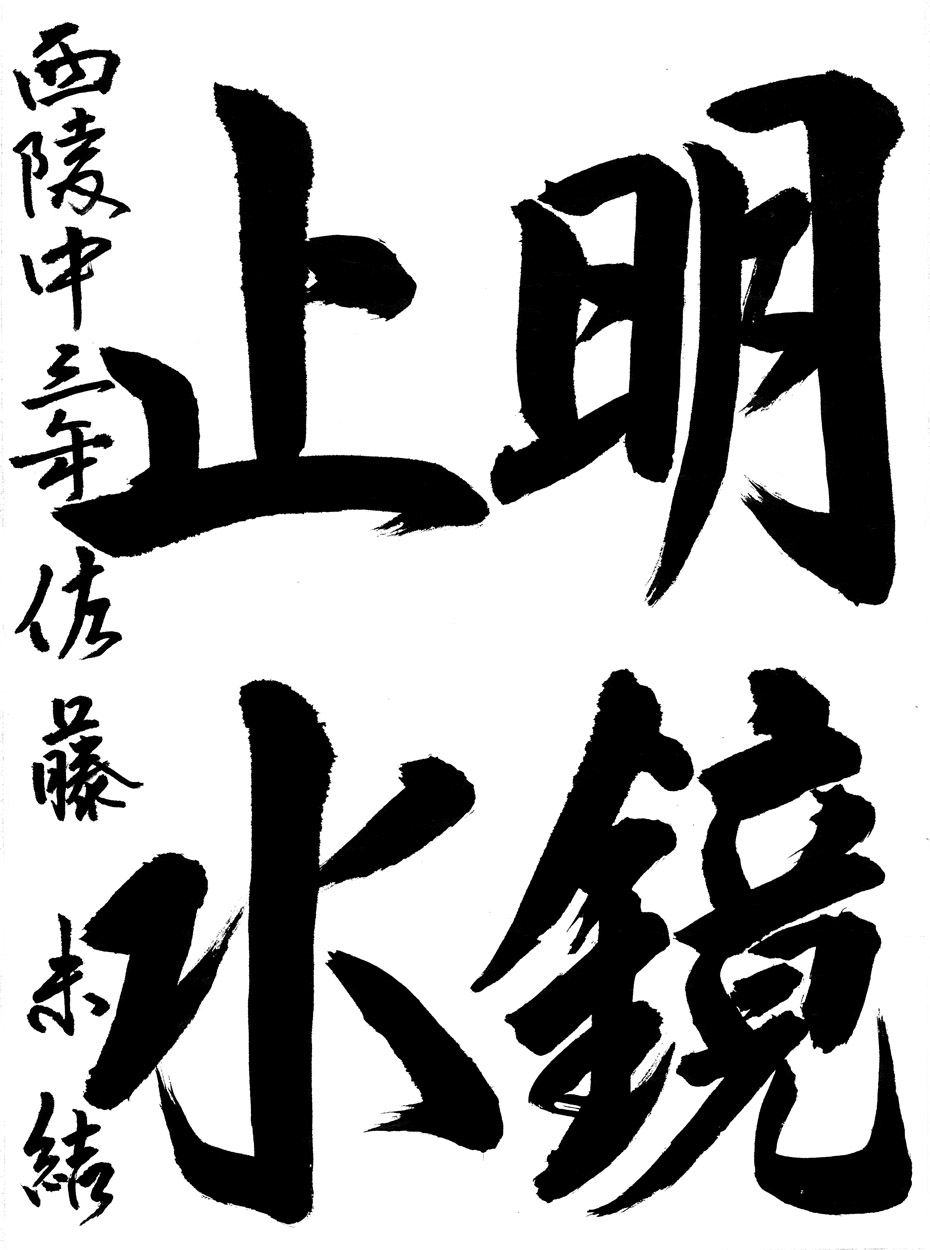 明鏡
止水
西陵中三年 佐藤未結